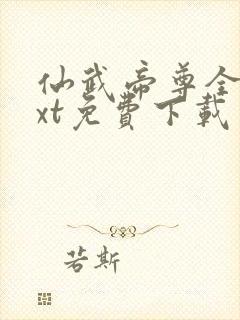 仙武帝尊全
xt免費下載
若斯